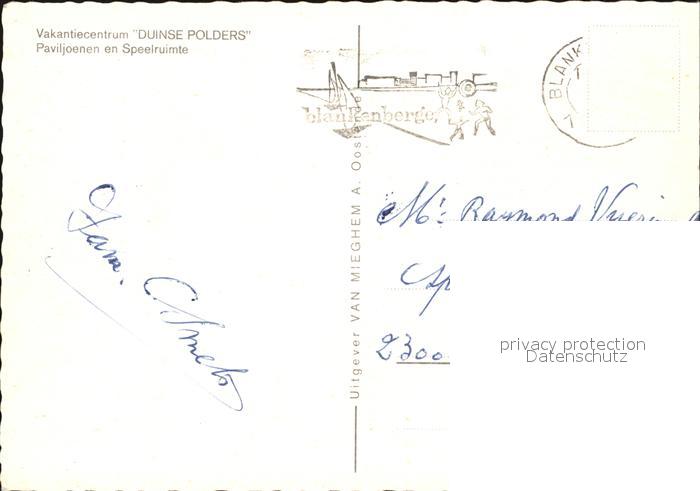 Vakantiecentrum "DUINSE POLDERS"
Paviljoenen en Speelruimte
blankenberge,
BLANK
Uitgever VAN MIEGHEM A. Oostende
Mr. Raymond
2300
Fam.
privacy protection
Datenschutz